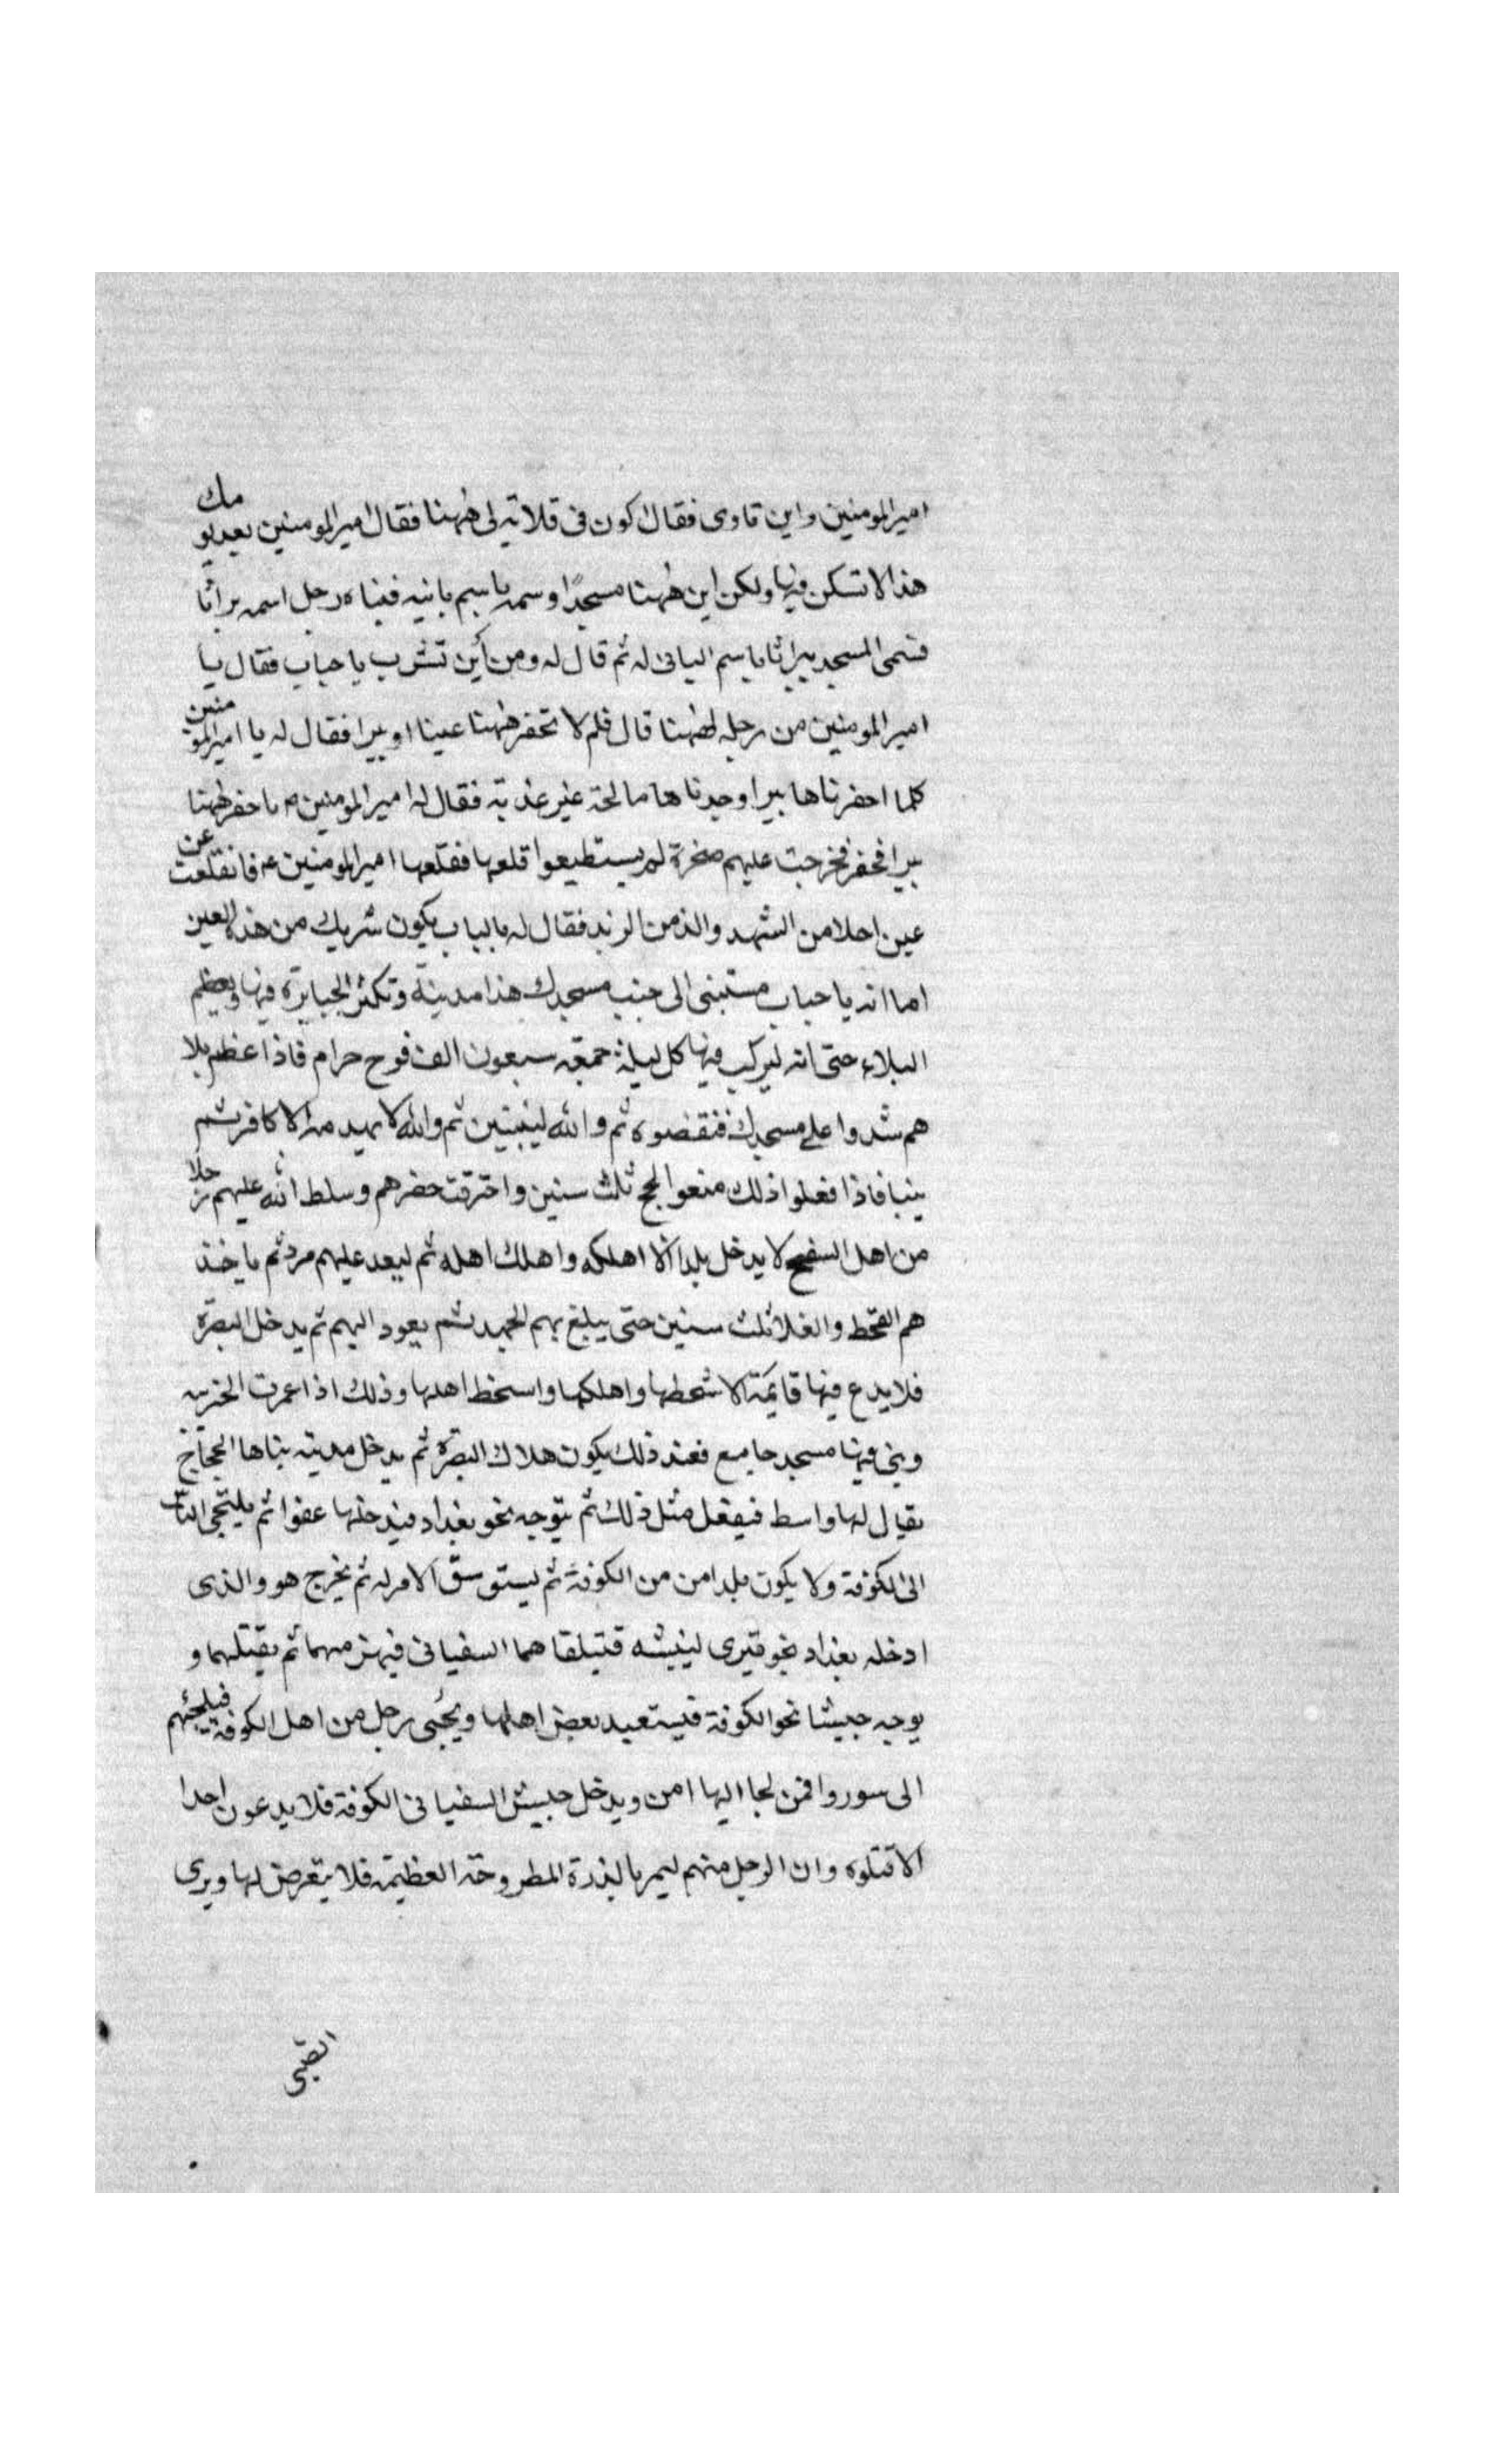 امير المومنين واين تاوى فقال اكون فى قلاتة لى ههنا فقال امير المومنين بعد يومك
هذا لا تسكن فيها ولكن ابن ههنا مسجدًا وسمه باسم بانيه فبناه رجل اسمه براثا
فسمى المسجد ببراثا باسم البانى له ثم قال له ومن أين تشرب يا حباب فقال يا
امير المومنين من دجله ههنا قال فلم لا تحفر ههنا عينا او بيرا فقال له يا امير المومنين
كلما احفرناها بيرا وجدناها مالحة غير عذبة فقال له امير المومنين ع احفر ههنا
بيرا فحفر فخرجت عليهم صخرة لم يستطيعوا قلعها فقلعها امير المومنين ع فانقلعت عن
عين احلا من الشهد والذ من الزبد فقال له يا حباب يكون شربك من هذه العين
اما انه يا حباب ستبنى الى جنب مسجدك هذا مدينة وتكثر الجبابرة فيها ويعظم
البلاء حتى انه ليركب فيها كل ليلة جمعة سبعون الف فرج حرام فاذا عظم بلا
هم شدوا على مسجدك فنقضوه ثم والله ليبنين ثم والله لا يهدمه الا كافر ثم
يبنا فاذا فعلوا ذلك منعوا الحج ثلث سنين واحترقت خضرهم وسلط الله عليهم رجلا
من اهل السفح لا يدخل بلدا الا اهلكه واهلك اهله ثم ليعد عليهم مرة ثم ياخذ
هم القحط والغلا ثلث سنين حتى يبلغ بهم الجهد ثم يعود اليهم ثم يدخل البصرة
فلا يدع فيها قايمة الا سخطها واهلكها واسخط اهلها وذلك اذا عمرت الخربه
وبنى فيها مسجد جامع فعند ذلك يكون هلاك البصرة ثم يدخل مدينه بناها الحجاج
يقال لها واسط فيفعل مثل ذلك ثم يتوجه نحو بغداد فيدخلها عفوا ثم يلتجى الناس
الى الكوفة ولا يكون بلد امن من الكوفة ثم يستوسق الامر له ثم يخرج هو والذى
ادخله بغداد نحو قبرى لينبشه فتيلقاهما السفيانى فيهزمهما ثم يقتلهما و
يوجه جيشا نحو الكوفة فيستعبد بعض اهلها ويجئى رجل من اهل الكوفة فيلجئهم
الى سور وا فمن لجا اليها امن ويدخل جيش السفيانى الكوفة فلا يدعون احدا
الا قتلوه وان الرجل منهم ليمر بالدرة المطروحة العظيمة فلا يتعرض لها ويرى
الصبى